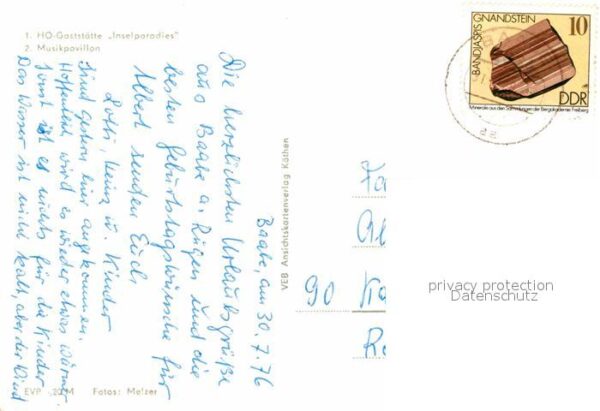 1. HO-Gaststätte „Inselparadies"
2. Musikpavillon
BANDJASPIS GNANDSTEIN
10
DDR
Minerale aus den Sammlungen der Bergakademie Freiberg
Baabe, am 30.7.76
Die herzlichsten Urlaubsgrüße
aus Baabe a. Rügen und die
besten Geburtstagswünsche für
Albert senden Euch
Lotti, Heinz u. Kinder
Sind gestern hier angekommen.
Hoffentl. wird es wieder etwas wärmer
sonst ist es nichts für die Kinder
Das Wasser ist nicht kalt, aber der Wind
VEB Ansichtskartenverlag Köthen
Fa
90
privacy protection
Datenschutz
EVP -,20 M Fotos: Melzer